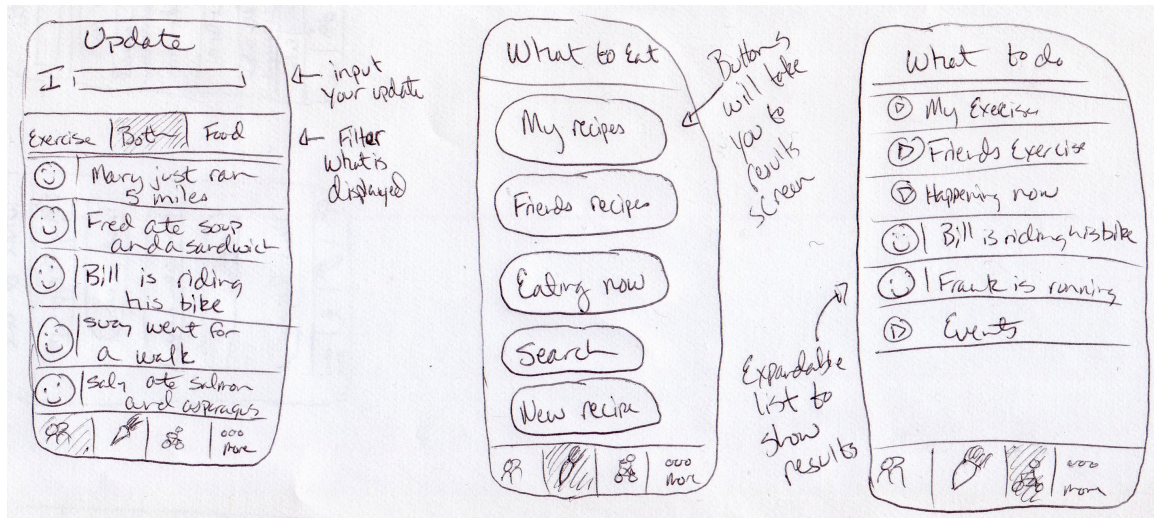 Update
I
input
your update
Exercise Both Food
Filter
what is
displayed
Mary just ran
5 miles
Fred ate soup
and a sandwich
Bill is riding
his bike
suzy went for
a walk
Saly ate salmon
and asparagus
ooo
more
What to Eat
My recipes
Friends recipes
Eating now
Search
New recipe
ooo
more
Buttons
will take
you to
results
screen
What to do
My Exercise
Friends Exercise
Happening now
Bill is riding his bike
Frank is running
Events
Expandable
list to
show
results
ooo
more